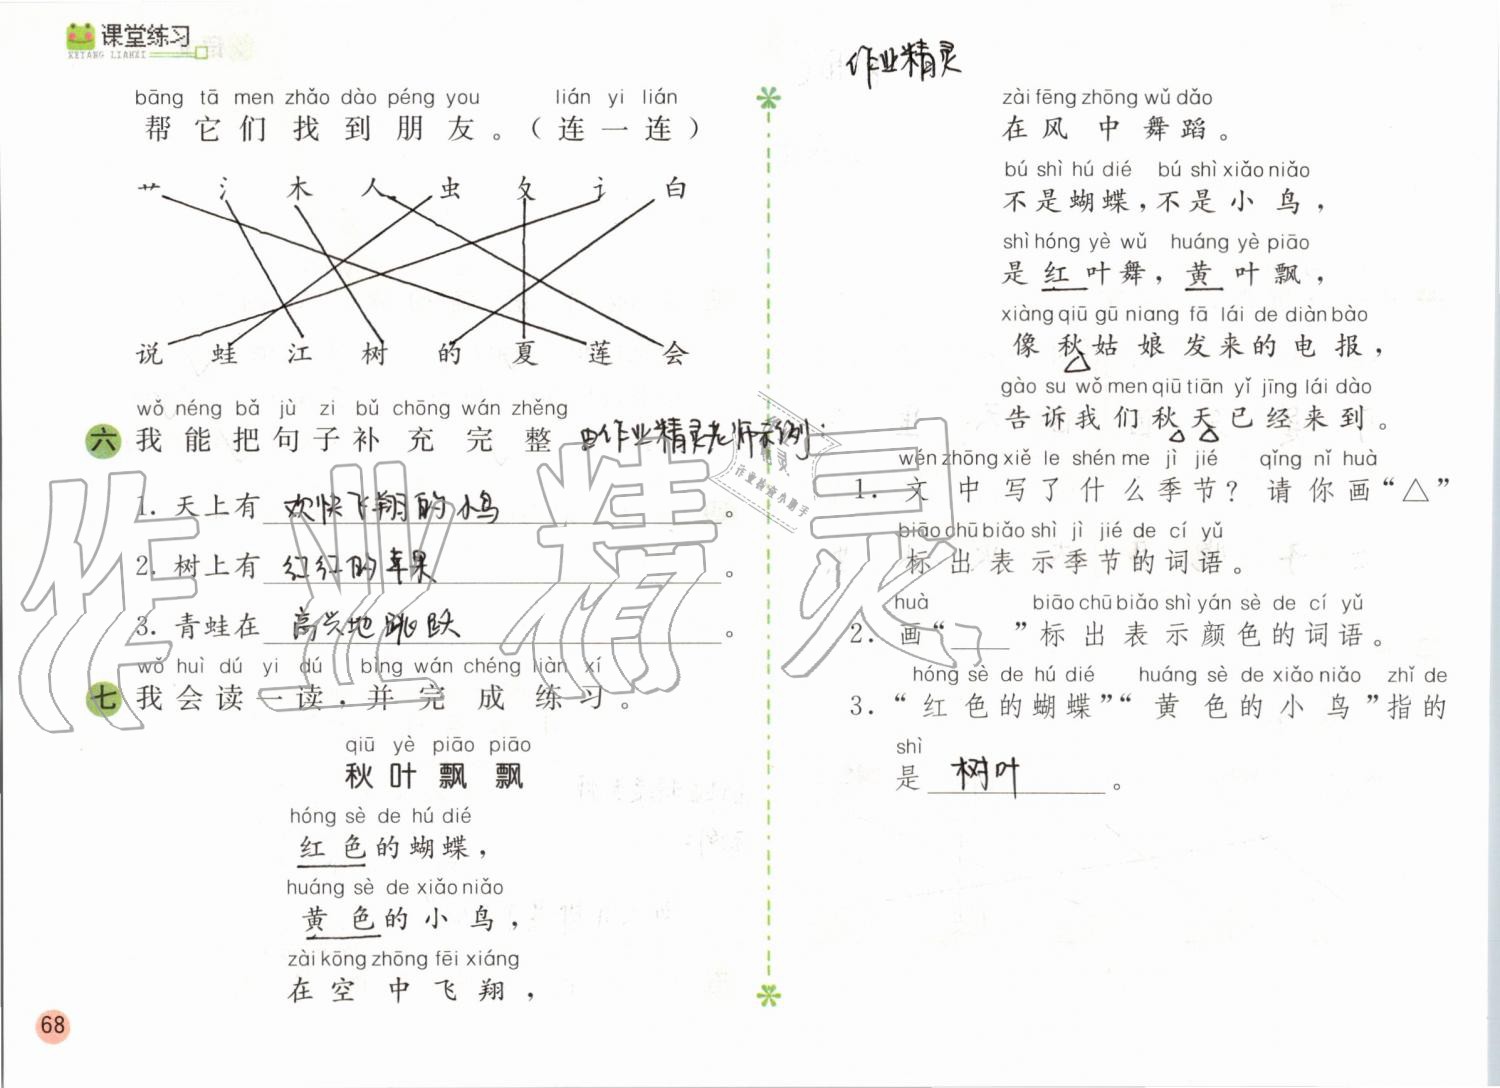 课堂练习
KETANG LIANXI
bāng tā men zhǎo dào péng you lián yi lián
帮它们找到朋友。(连一连)
艹 氵 木 人 虫 夂 讠 白
说 蛙 江 树 的 夏 莲 会
wǒ néng bǎ jù zi bǔ chōng wán zhěng
六 我能把句子补充完整。作业精灵老师示例:
1. 天上有 欢快飞翔的小鸟 。
2. 树上有 红红的苹果 。
3. 青蛙在 高兴地跳跃 。
wǒ huì dú yi dú bìng wán chéng liàn xí
七 我会读一读,并完成练习。
qiū yè piāo piāo
秋叶飘飘
hóng sè de hú dié
红色的蝴蝶,
huáng sè de xiǎo niǎo
黄色的小鸟,
zài kōng zhōng fēi xiáng
在空中飞翔,
68
作业精灵
zài fēng zhōng wǔ dǎo
在风中舞蹈。
bú shì hú dié bú shì xiǎo niǎo
不是蝴蝶,不是小鸟,
shì hóng yè wǔ huáng yè piāo
是红叶舞,黄叶飘,
xiàng qiū gū niang fā lái de diàn bào
像秋姑娘发来的电报,
gào su wǒ men qiū tiān yǐ jīng lái dào
告诉我们秋天已经来到。
wén zhōng xiě le shén me jì jié qǐng nǐ huà
1. 文中写了什么季节?请你画“△”
biāo chū biǎo shì jì jié de cí yǔ
标出表示季节的词语。
huà biāo chū biǎo shì yán sè de cí yǔ
2. 画“____”标出表示颜色的词语。
hóng sè de hú dié huáng sè de xiǎo niǎo zhǐ de
3. “红色的蝴蝶”“黄色的小鸟”指的
shì
是 树叶 。
作业精灵